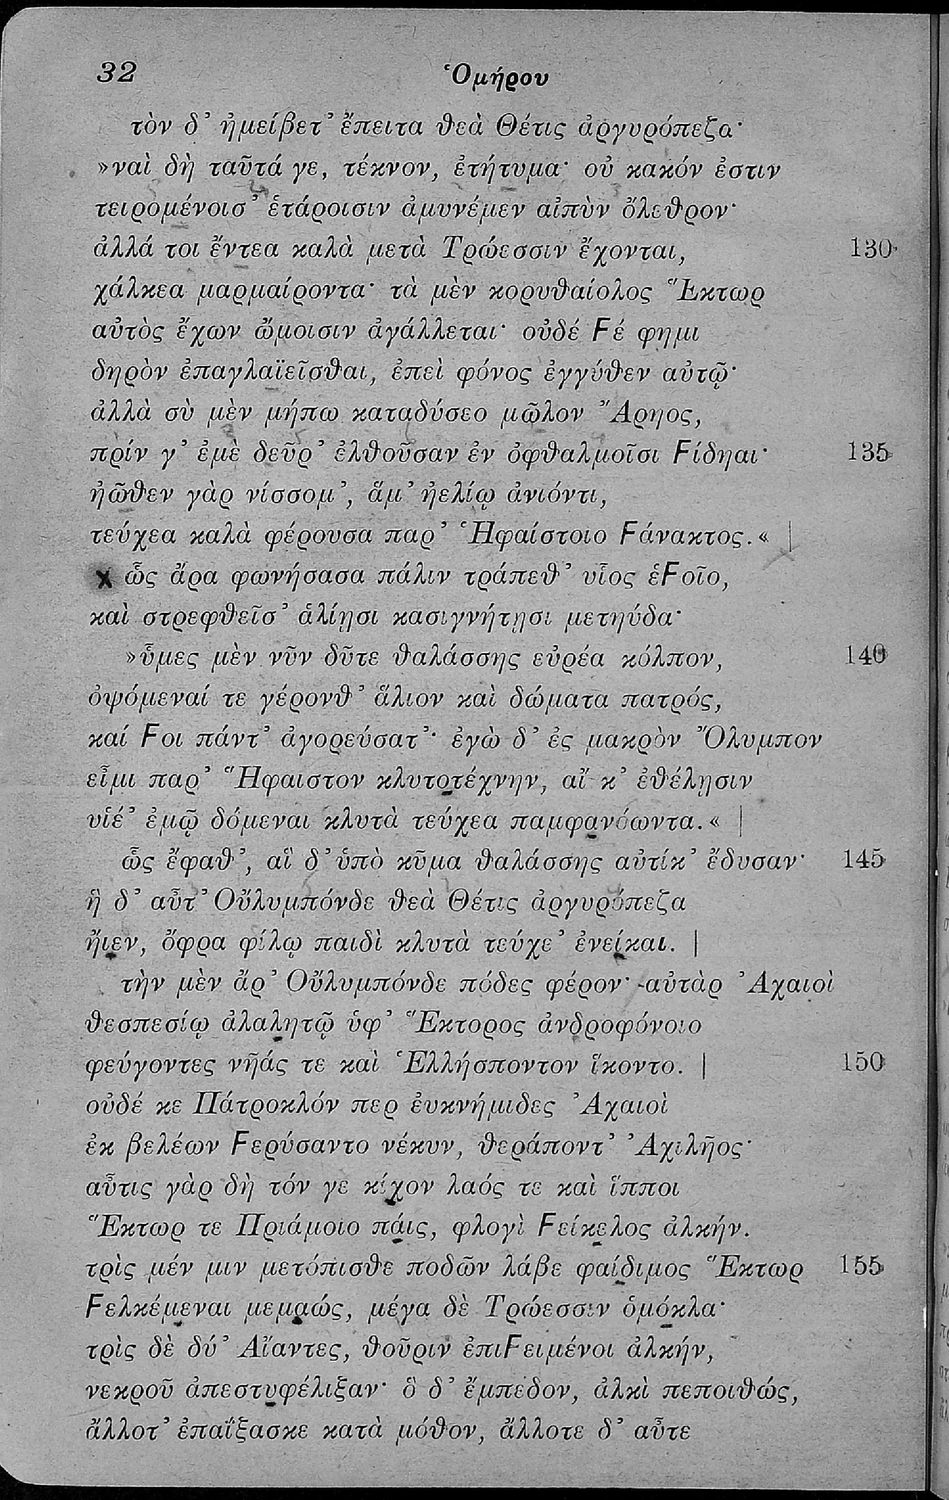 32 Ὁμήρου
τὸν δ’ ἠμείβετ’ ἔπειτα θεὰ Θέτις ἀργυρόπεζα·
»ναὶ δὴ ταῦτά γε, τέκνον, ἐτήτυμα· οὐ κακόν ἐστιν
τειρομένοισ’ ἑτάροισιν ἀμυνέμεν αἰπὺν ὄλεθρον·
ἀλλά τοι ἔντεα καλὰ μετὰ Τρώεσσιν ἔχονται, 130
χάλκεα μαρμαίροντα· τὰ μὲν κορυθαίολος Ἕκτωρ
αὐτὸς ἔχων ὤμοισιν ἀγάλλεται· οὐδέ Ϝέ φημι
δηρὸν ἐπαγλαϊεῖσθαι, ἐπεὶ φόνος ἐγγύθεν αὐτῷ·
ἀλλὰ σὺ μὲν μήπω καταδύσεο μῶλον Ἄρηος,
πρίν γ’ ἐμὲ δεῦρ’ ἐλθοῦσαν ἐν ὀφθαλμοῖσι Ϝίδηαι· 135
ἠῶθεν γὰρ νίσσομ’, ἅμ’ ἠελίῳ ἀνιόντι,
τεύχεα καλὰ φέρουσα παρ’ Ἡφαίστοιο Ϝάνακτος.« |
ὣς ἄρα φωνήσασα πάλιν τράπεθ’ υἷος ἑϜοῖο,
καὶ στρεφθεῖσ’ ἁλίῃσι κασιγνήτῃσι μετηύδα·
»ὗμες μὲν νῦν δῦτε θαλάσσης εὐρέα κόλπον, 140
ὀψόμεναί τε γέρονθ’ ἅλιον καὶ δώματα πατρός,
καί Ϝοι πάντ’ ἀγορεύσατ’· ἐγὼ δ’ ἐς μακρὸν Ὄλυμπον
εἶμι παρ’ Ἥφαιστον κλυτοτέχνην, αἴ κ’ ἐθέλῃσιν
υἱέ’ ἐμῷ δόμεναι κλυτὰ τεύχεα παμφανόωντα.« |
ὣς ἔφαθ’, αἳ δ’ ὑπὸ κῦμα θαλάσσης αὐτίκ’ ἔδυσαν· 145
ἣ δ’ αὖτ’ Οὔλυμπόνδε θεὰ Θέτις ἀργυρόπεζα
ἤιεν, ὄφρα φίλῳ παιδὶ κλυτὰ τεύχε’ ἐνείκαι. |
τὴν μὲν ἄρ’ Οὔλυμπόνδε πόδες φέρον· αὐτὰρ Ἀχαιοὶ
θεσπεσίῳ ἀλαλητῷ ὑφ’ Ἕκτορος ἀνδροφόνοιο
φεύγοντες νῆάς τε καὶ Ἑλλήσποντον ἵκοντο. | 150
οὐδέ κε Πάτροκλόν περ ἐυκνήμιδες Ἀχαιοὶ
ἐκ βελέων Ϝερύσαντο νέκυν, θεράποντ’ Ἀχιλῆος·
αὖτις γὰρ δὴ τόν γε κίχον λαός τε καὶ ἵπποι
Ἕκτωρ τε Πριάμοιο πάις, φλογὶ Ϝείκελος ἀλκήν.
τρὶς μέν μιν μετόπισθε ποδῶν λάβε φαίδιμος Ἕκτωρ 155
Ϝελκέμεναι μεμαώς, μέγα δὲ Τρώεσσιν ὁμόκλα·
τρὶς δὲ δύ’ Αἴαντες, θοῦριν ἐπιϜειμένοι ἀλκήν,
νεκροῦ ἀπεστυφέλιξαν· ὃ δ’ ἔμπεδον, ἀλκὶ πεποιθώς,
ἄλλοτ’ ἐπαΐξασκε κατὰ μόθον, ἄλλοτε δ’ αὖτε